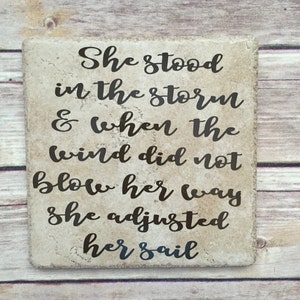 She stood
in the storm
& when the
wind did not
blow her way
she adjusted
her sail